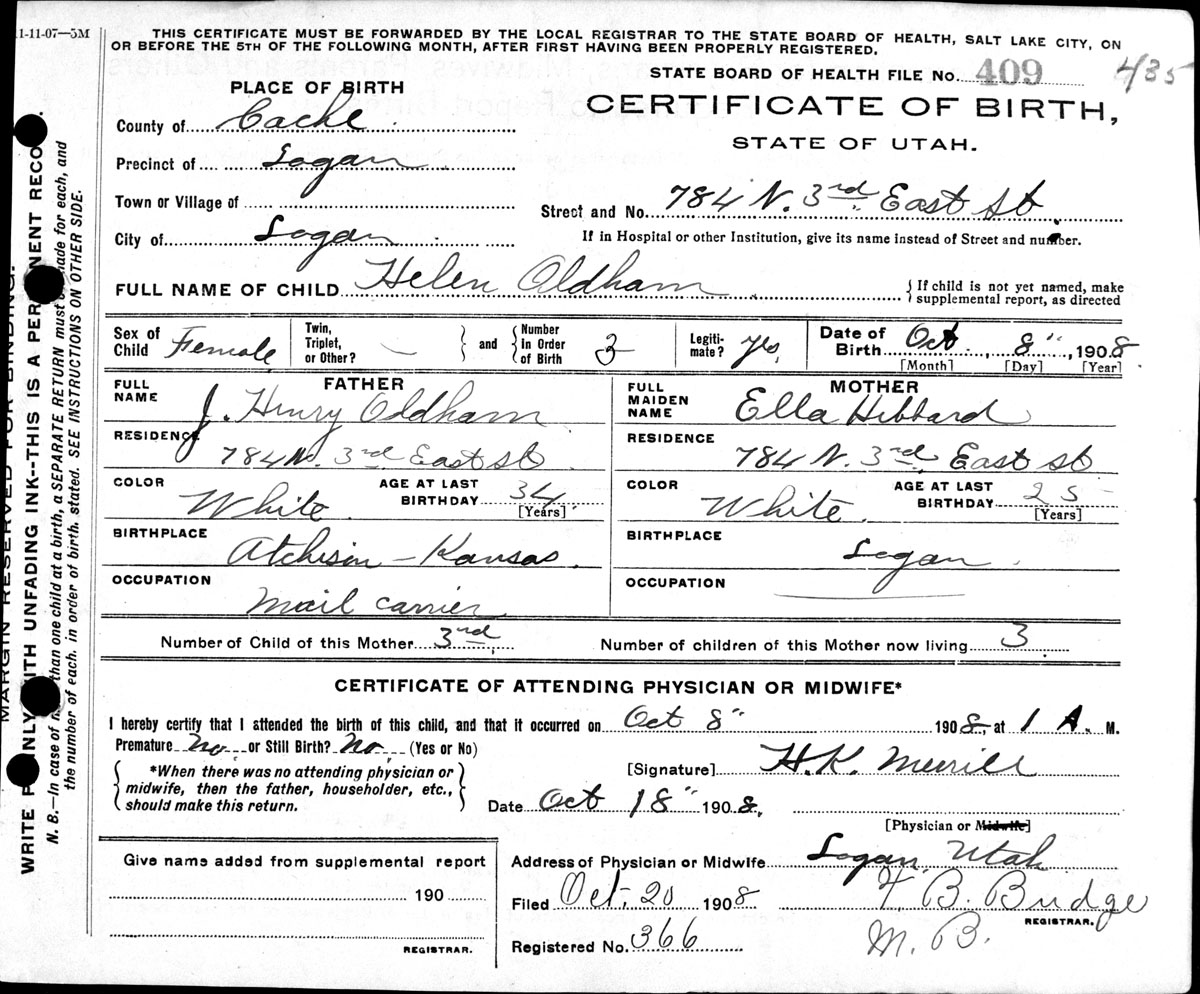 11-11-07—5M
THIS CERTIFICATE MUST BE FORWARDED BY THE LOCAL REGISTRAR TO THE STATE BOARD OF HEALTH, SALT LAKE CITY, ON
OR BEFORE THE 5TH OF THE FOLLOWING MONTH, AFTER FIRST HAVING BEEN PROPERLY REGISTERED.
STATE BOARD OF HEALTH FILE No. 409 435
PLACE OF BIRTH
CERTIFICATE OF BIRTH,
STATE OF UTAH.
County of Cache
Precinct of Logan
Town or Village of
Street and No. 784 N. 3rd East St.
City of Logan
If in Hospital or other Institution, give its name instead of Street and number.
FULL NAME OF CHILD Helen Oldham
{ If child is not yet named, make
supplemental report, as directed
Sex of Child Female
Twin, Triplet, or Other? —
and { Number In Order of Birth 3
Legiti-mate? Yes
Date of Birth Oct, 8", 1908
[Month] [Day] [Year]
FATHER
FULL NAME J. Henry Oldham
RESIDENCE 784 N. 3rd East St
COLOR White AGE AT LAST BIRTHDAY 34 [Years]
BIRTHPLACE Atchison - Kansas
OCCUPATION Mail carrier
MOTHER
FULL MAIDEN NAME Ella Hibbard
RESIDENCE 784 N. 3rd East St
COLOR White AGE AT LAST BIRTHDAY 25 [Years]
BIRTHPLACE Logan
OCCUPATION
Number of Child of this Mother 3rd Number of children of this Mother now living 3
CERTIFICATE OF ATTENDING PHYSICIAN OR MIDWIFE*
I hereby certify that I attended the birth of this child, and that it occurred on Oct 8" 1908, at 1 A. M.
Premature No or Still Birth? No (Yes or No)
{ *When there was no attending physician or
midwife, then the father, householder, etc.,
should make this return. }
[Signature] H.K. Merrill
Date Oct 18" 1908.
[Physician or Midwife]
Give name added from supplemental report
190
REGISTRAR.
Address of Physician or Midwife Logan Utah
Filed Oct. 20 1908 F. B. Budge
REGISTRAR.
Registered No. 366 M. B.
MARGIN RESERVED FOR BINDING.
WRITE WITH UNFADING INK--THIS IS A
N. B.—In case of than one child at a birth, a SEPARATE RETURN must made for each, and
the number of each, in order of birth, stated. SEE INSTRUCTIONS ON OTHER SIDE.